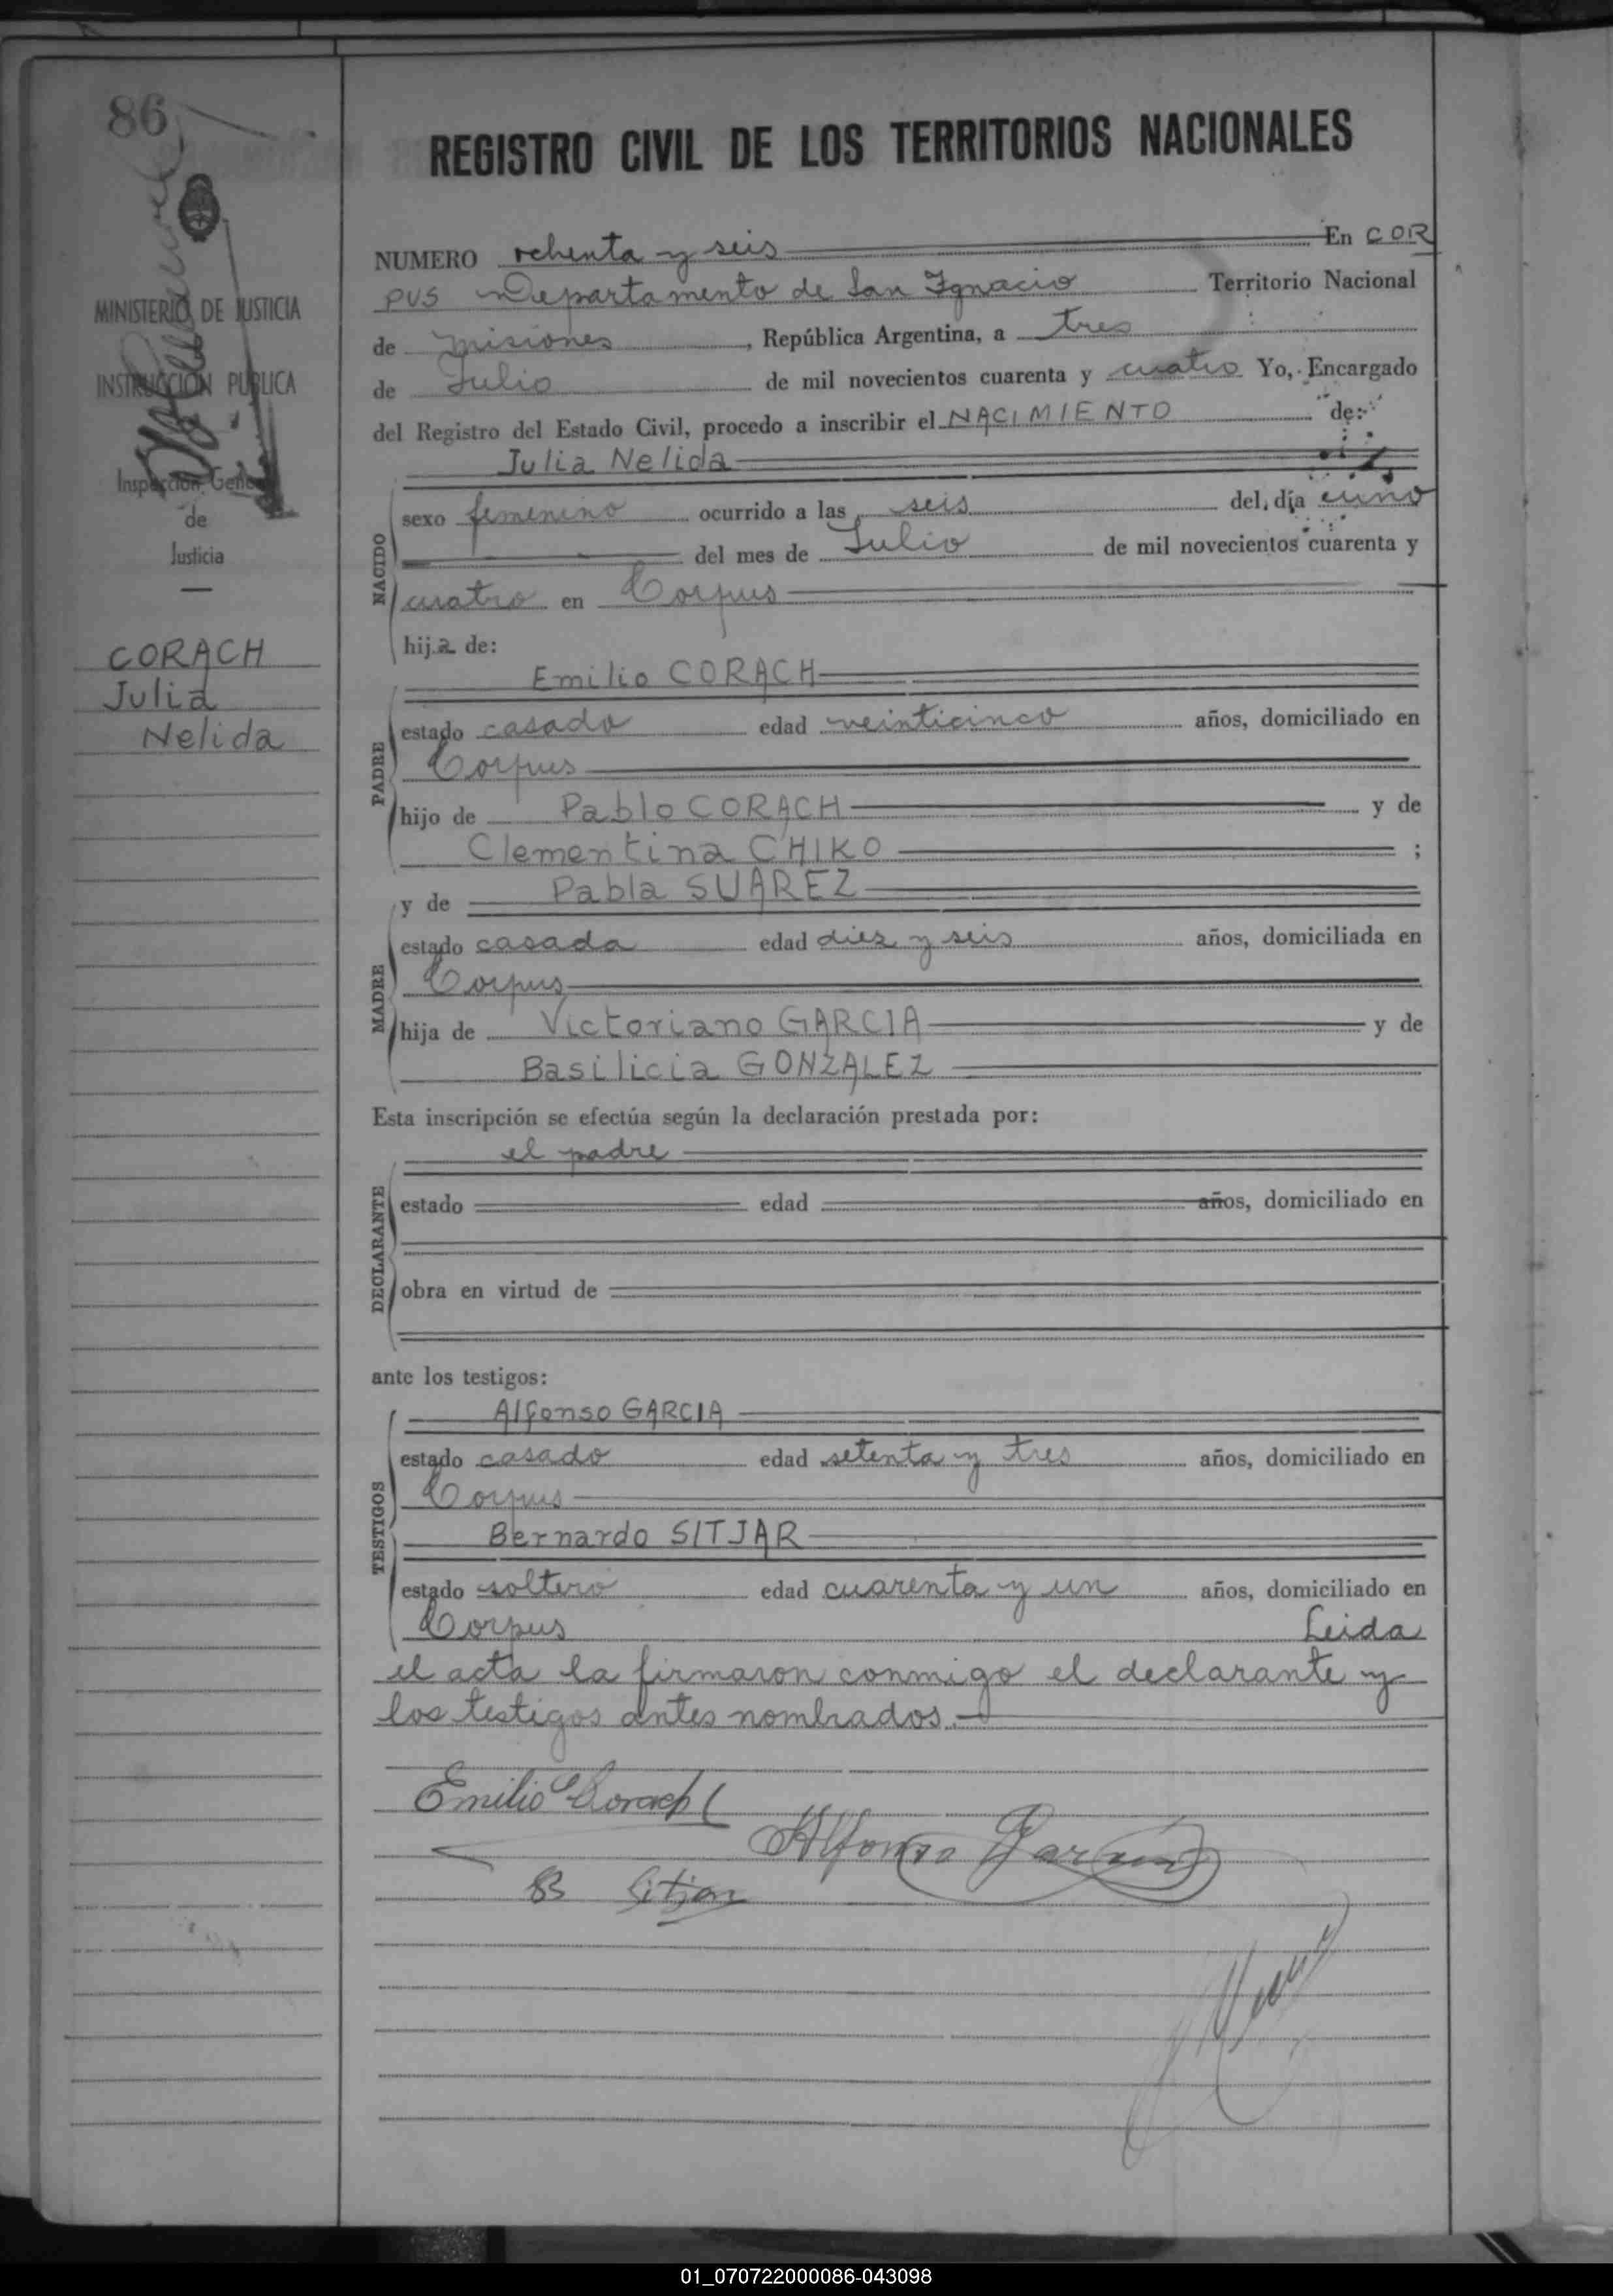 86
REGISTRO CIVIL DE LOS TERRITORIOS NACIONALES
MINISTERIO DE JUSTICIA
INSTRUCCION PUBLICA
Inspección General
de
Justicia
CORACH
Julia
Nelida
NUMERO ochenta y seis En COR
PUS Departamento de San Ignacio Territorio Nacional
de Misiones, República Argentina, a tres
de Julio de mil novecientos cuarenta y cuatro Yo, Encargado
del Registro del Estado Civil, procedo a inscribir el NACIMIENTO de:
Julia Nelida
NACIDO
sexo femenino ocurrido a las seis del día uno
del mes de Julio de mil novecientos cuarenta y
cuatro en Corpus
hija de:
Emilio CORACH
PADRE
estado casado edad veinticinco años, domiciliado en
Corpus
hijo de Pablo CORACH y de
Clementina CHIKO ;
y de Pabla SUAREZ
MADRE
estado casada edad diez y seis años, domiciliada en
Corpus
hija de Victoriano GARCIA y de
Basilicia GONZALEZ
Esta inscripción se efectúa según la declaración prestada por:
el padre
DECLARANTE
estado edad años, domiciliado en
obra en virtud de
ante los testigos:
Alfonso GARCIA
TESTIGOS
estado casado edad setenta y tres años, domiciliado en
Corpus
Bernardo SITJAR
estado soltero edad cuarenta y un años, domiciliado en
Corpus Leida
el acta la firmaron conmigo el declarante y
los testigos antes nombrados.—
Emilio Corach
Alfonso Garcia
B Sitjar
01_070722000086-043098